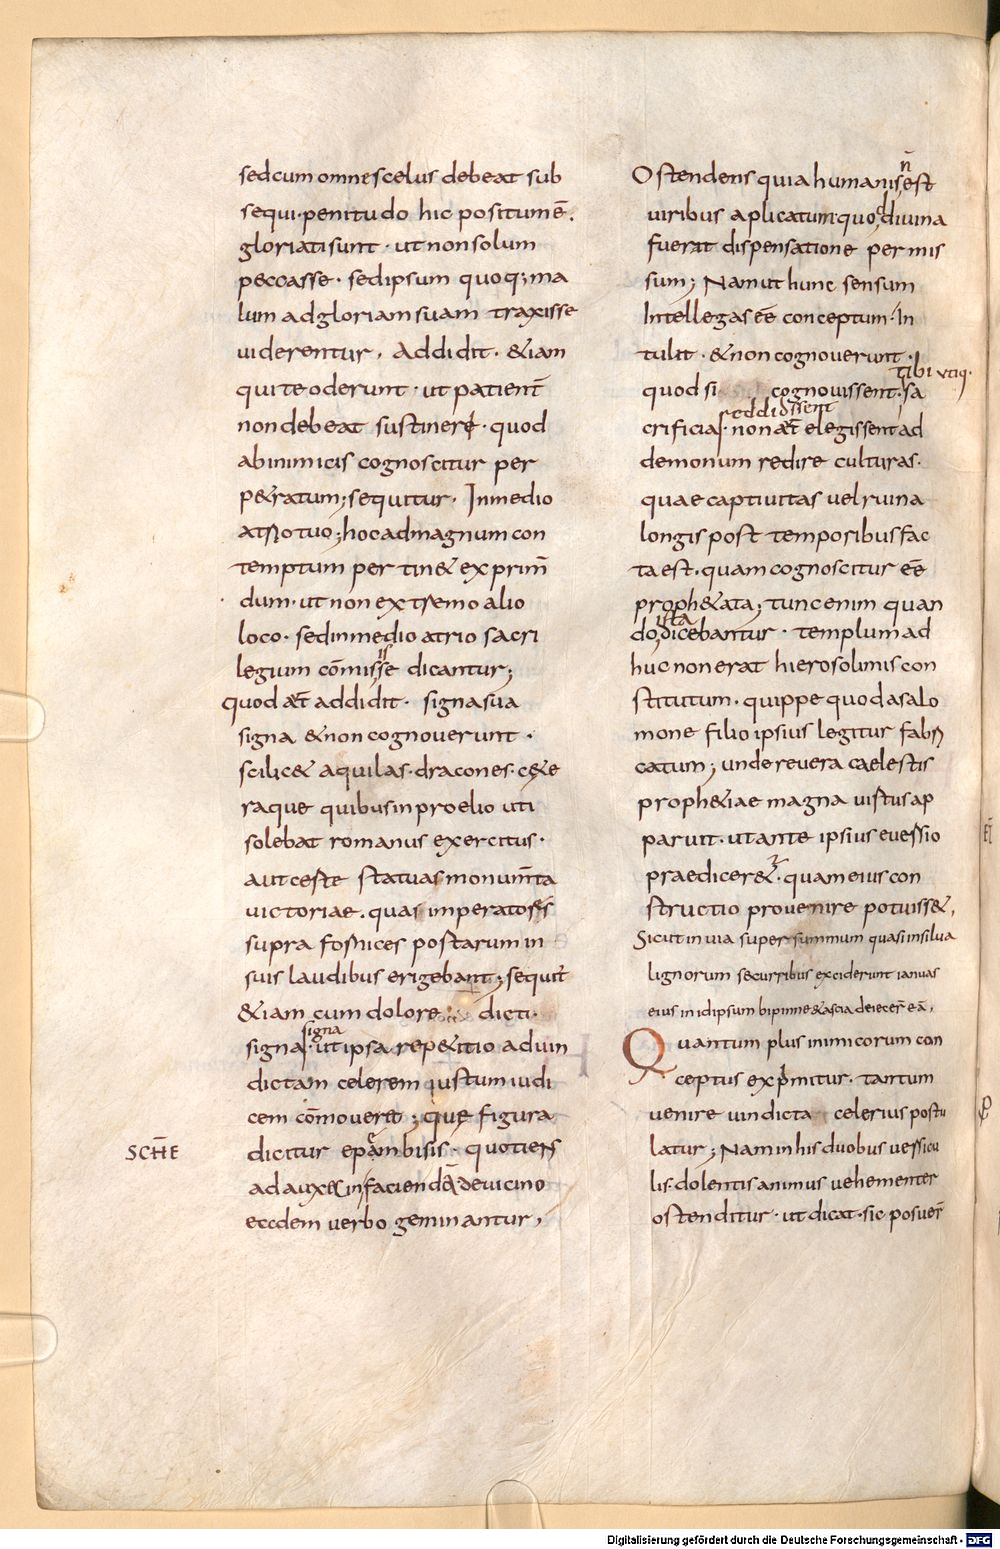 sed cum omne scelus debeat sub
sequi· penitudo hic positum ē.
gloriati sunt · ut non solum
peccasse · sed ipsum quoq; ma
lum ad gloriam suam traxisse
uiderentur, Addidit · &iam
qui te oderunt · ut patient̄
non debeat sustinere · quod
ab inimicis cognoscitur per
p&ratum; sequitur · In medio
atrio tuo; hoc ad magnum con
temptum pertin& exprim̄
dum · ut non extremo alio
loco · sed in medio atrio sacri
legium cōmisisse dicantur;
quod aūt addidit · signa sua
signa & non cognouerunt ·
scilic& aquilas · dracones · c&e
raque quibus in proelio uti
solebat romanus exercitus ·
aut certe statuas monum̄ta
uictoriae · quas imperatores
supra fornices portarum in
suis laudibus erigebant; sequit̄
&iam cum dolore dicti ·
signa
signa · ut ipsa rep&itio ad uin
dictam celerem iustum iudi
cem cōmoueret; que figura
SCHE
dicitur epanbisis · quotiens
ad aux&in faciendā de uicino
eodem uerbo geminantur,
Ostendens quia humanis n̄ est
uiribus aplicatum · quod diuina
fuerat dispensatione permis
sum; Nam ut hunc sensum
Intellegas eē conceptum · In
tulit · & non cognouerunt ·
tibi utiq·
quod si cognouissent · sa
reddidissent
crificia · non aūt elegissent ad
demonum redire culturas ·
quae captiuitas uel ruina
longis post temporibus fac
ta est · quam cognoscitur eē
proph&ata; tunc enim quan
ista
do dicebantur · templum ad
huc non erat hierosolimis con
stitutum · quippe quod a salo
mone filio ipsius legitur fabri
catum; unde reuera caelestis
proph&iae magna uirtus ap
paruit · ut ante ipsius euersio
praedicer&ur · quam eius con
structio prouenire potuiss&,
Sicut in uia super summum quasi in silua
lignorum securribus exciderunt ianuas
eius in idipsum bipinne & ascia deiecer̄ eā,
Quantum plus inimicorum con
ceptus exprimitur · tantum
uenire uindicta celerius postu
latur; Nam in his duobus uersicu
lis · dolentis animus uehementer
ostenditur · ut dicat · sic posuer̄
Digitalisierung gefördert durch die Deutsche Forschungsgemeinschaft - DFG